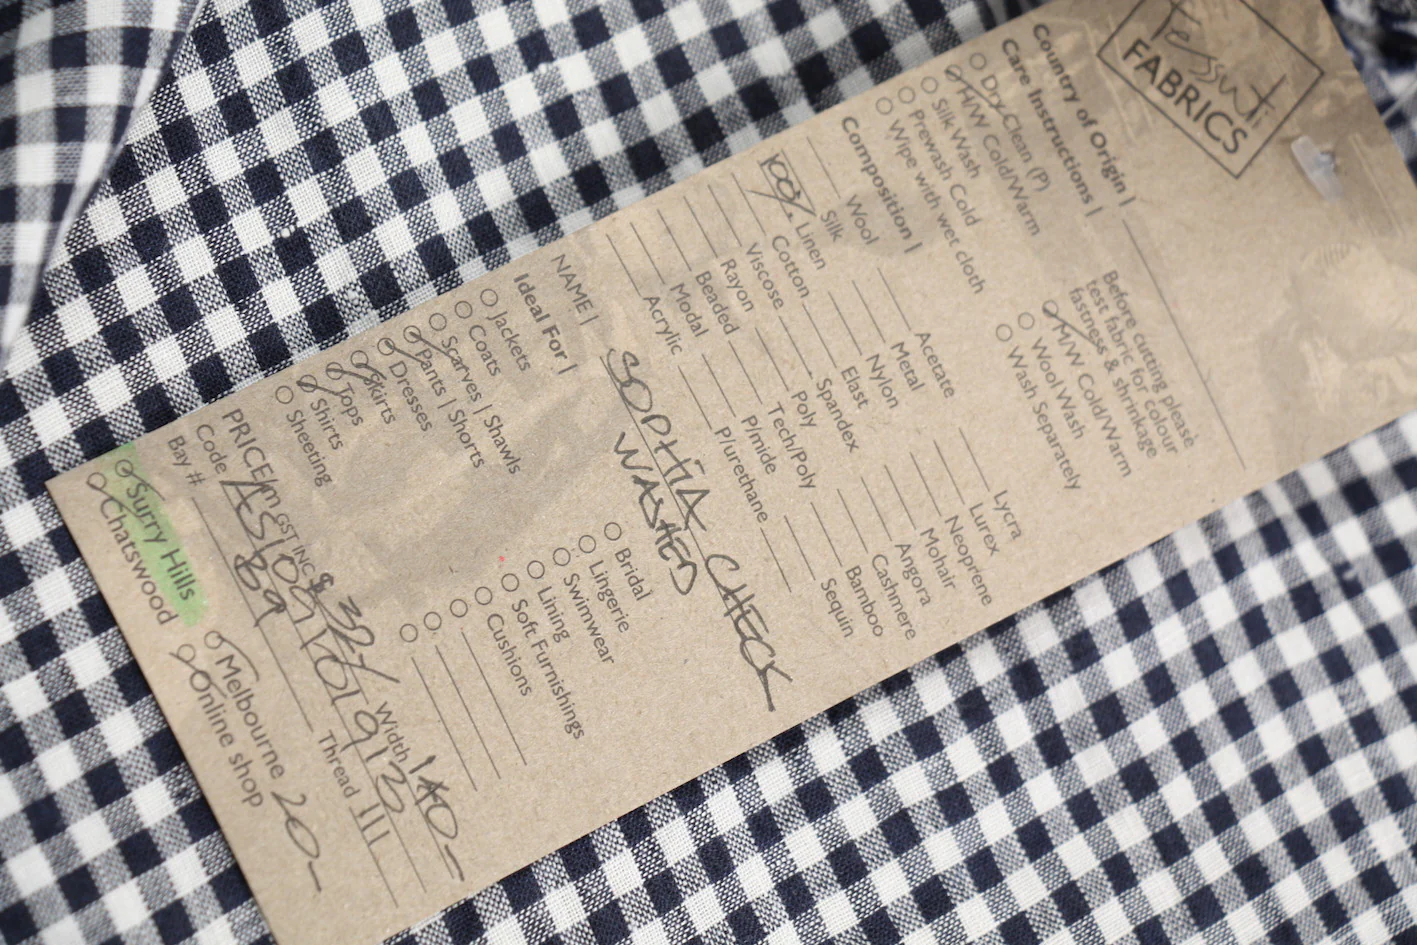 Tessuti
FABRICS
Country of Origin |
Care Instructions |
Dry Clean (P)
H/W Cold/Warm
Silk Wash
Prewash Cold
Wipe with wet cloth
Before cutting please
test fabric for colour
fastness & shrinkage
M/W Cold/Warm
Wool Wash
Wash Separately
Composition |
Wool
Silk
100% Linen
Cotton
Viscose
Rayon
Beaded
Modal
Acrylic
Acetate
Metal
Nylon
Elast
Spandex
Poly
Tech/Poly
P/mide
P/urethane
Lycra
Lurex
Neoprene
Mohair
Angora
Cashmere
Bamboo
Sequin
NAME | SOPHIA CHECK
WASHED
Ideal For |
Jackets
Coats
Scarves | Shawls
Pants | Shorts
Dresses
Skirts
Tops
Shirts
Sheeting
Bridal
Lingerie
Swimwear
Lining
Soft Furnishings
Cushions
PRICE/m GST INC $ Width 140-
Code
Bay # B9 Thread 111
Surry Hills
Chatswood
Melbourne 20-
Online shop